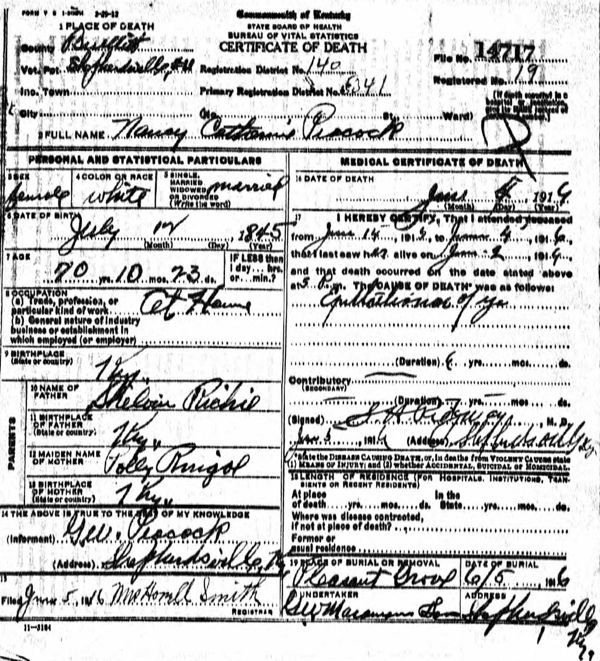 FORM V S 1-500M 3-29-12
Commonwealth of Kentucky
STATE BOARD OF HEALTH
BUREAU OF VITAL STATISTICS
CERTIFICATE OF DEATH
1 PLACE OF DEATH
County Bullitt
Vot. Pct. Shepherdsville #4
Inc. Town
City
Registration District No. 140
Primary Registration District No. 6341
(No. St. Ward)
File No. 14717
Registered No. 19
(If death occurred in a hospital or institution, give its NAME instead of street and number)
2 FULL NAME Nancy Catherine Peacock
PERSONAL AND STATISTICAL PARTICULARS
3 SEX Female
4 COLOR OR RACE White
5 SINGLE, MARRIED WIDOWED OR DIVORCED (Write the word) Married
6 DATE OF BIRTH July 12 1845
(Month) (Day) (Year)
7 AGE 70 yrs. 10 mos. 23 ds.
IF LESS than 1 day... hrs. or...min.?
8 OCCUPATION
(a) Trade, profession, or particular kind of work At Home
(b) General nature of industry business or establishment in which employed (or employer)
9 BIRTHPLACE (State or country) Ky.
PARENTS
10 NAME OF FATHER Richie
11 BIRTHPLACE OF FATHER (State or country) Ky.
12 MAIDEN NAME OF MOTHER Polly
13 BIRTHPLACE OF MOTHER (State or country) Ky.
14 THE ABOVE IS TRUE TO THE BEST OF MY KNOWLEDGE
(Informant) Geo. Peacock
(Address) Shepherdsville, Ky
15
Filed June 5, 1916 Smith
REGISTRAR
11-5184
MEDICAL CERTIFICATE OF DEATH
16 DATE OF DEATH June 4 1916
(Month) (Day) (Year)
17 I HEREBY CERTIFY, That I attended deceased
from June 14 191 to June 4 1916
that I last saw her alive on June 2 1916
and that death occurred on the date stated above
at 5 P.m. The CAUSE OF DEATH was as follows:
(Duration) yrs. mos. ds.
Contributory
(SECONDARY)
(Duration) yrs. mos. ds.
(Signed) S H Ridgway, M. D.
June 5, 1916 (Address) Shepherdsville Ky
*State the DISEASE CAUSING DEATH, or, in deaths from VIOLENT CAUSES state (1) MEANS OF INJURY; and (2) whether ACCIDENTAL, SUICIDAL OR HOMICIDAL.
18 LENGTH OF RESIDENCE (FOR HOSPITALS, INSTITUTIONS, TRANSIENTS OR RECENT RESIDENTS)
At place of death yrs. mos. ds. In the State yrs. mos. ds.
Where was disease contracted, if not at place of death?
Former or usual residence
19 PLACE OF BURIAL OR REMOVAL Pleasant Grove
DATE OF BURIAL 6/5 1916
UNDERTAKER Geo
ADDRESS Shepherdsville Ky.